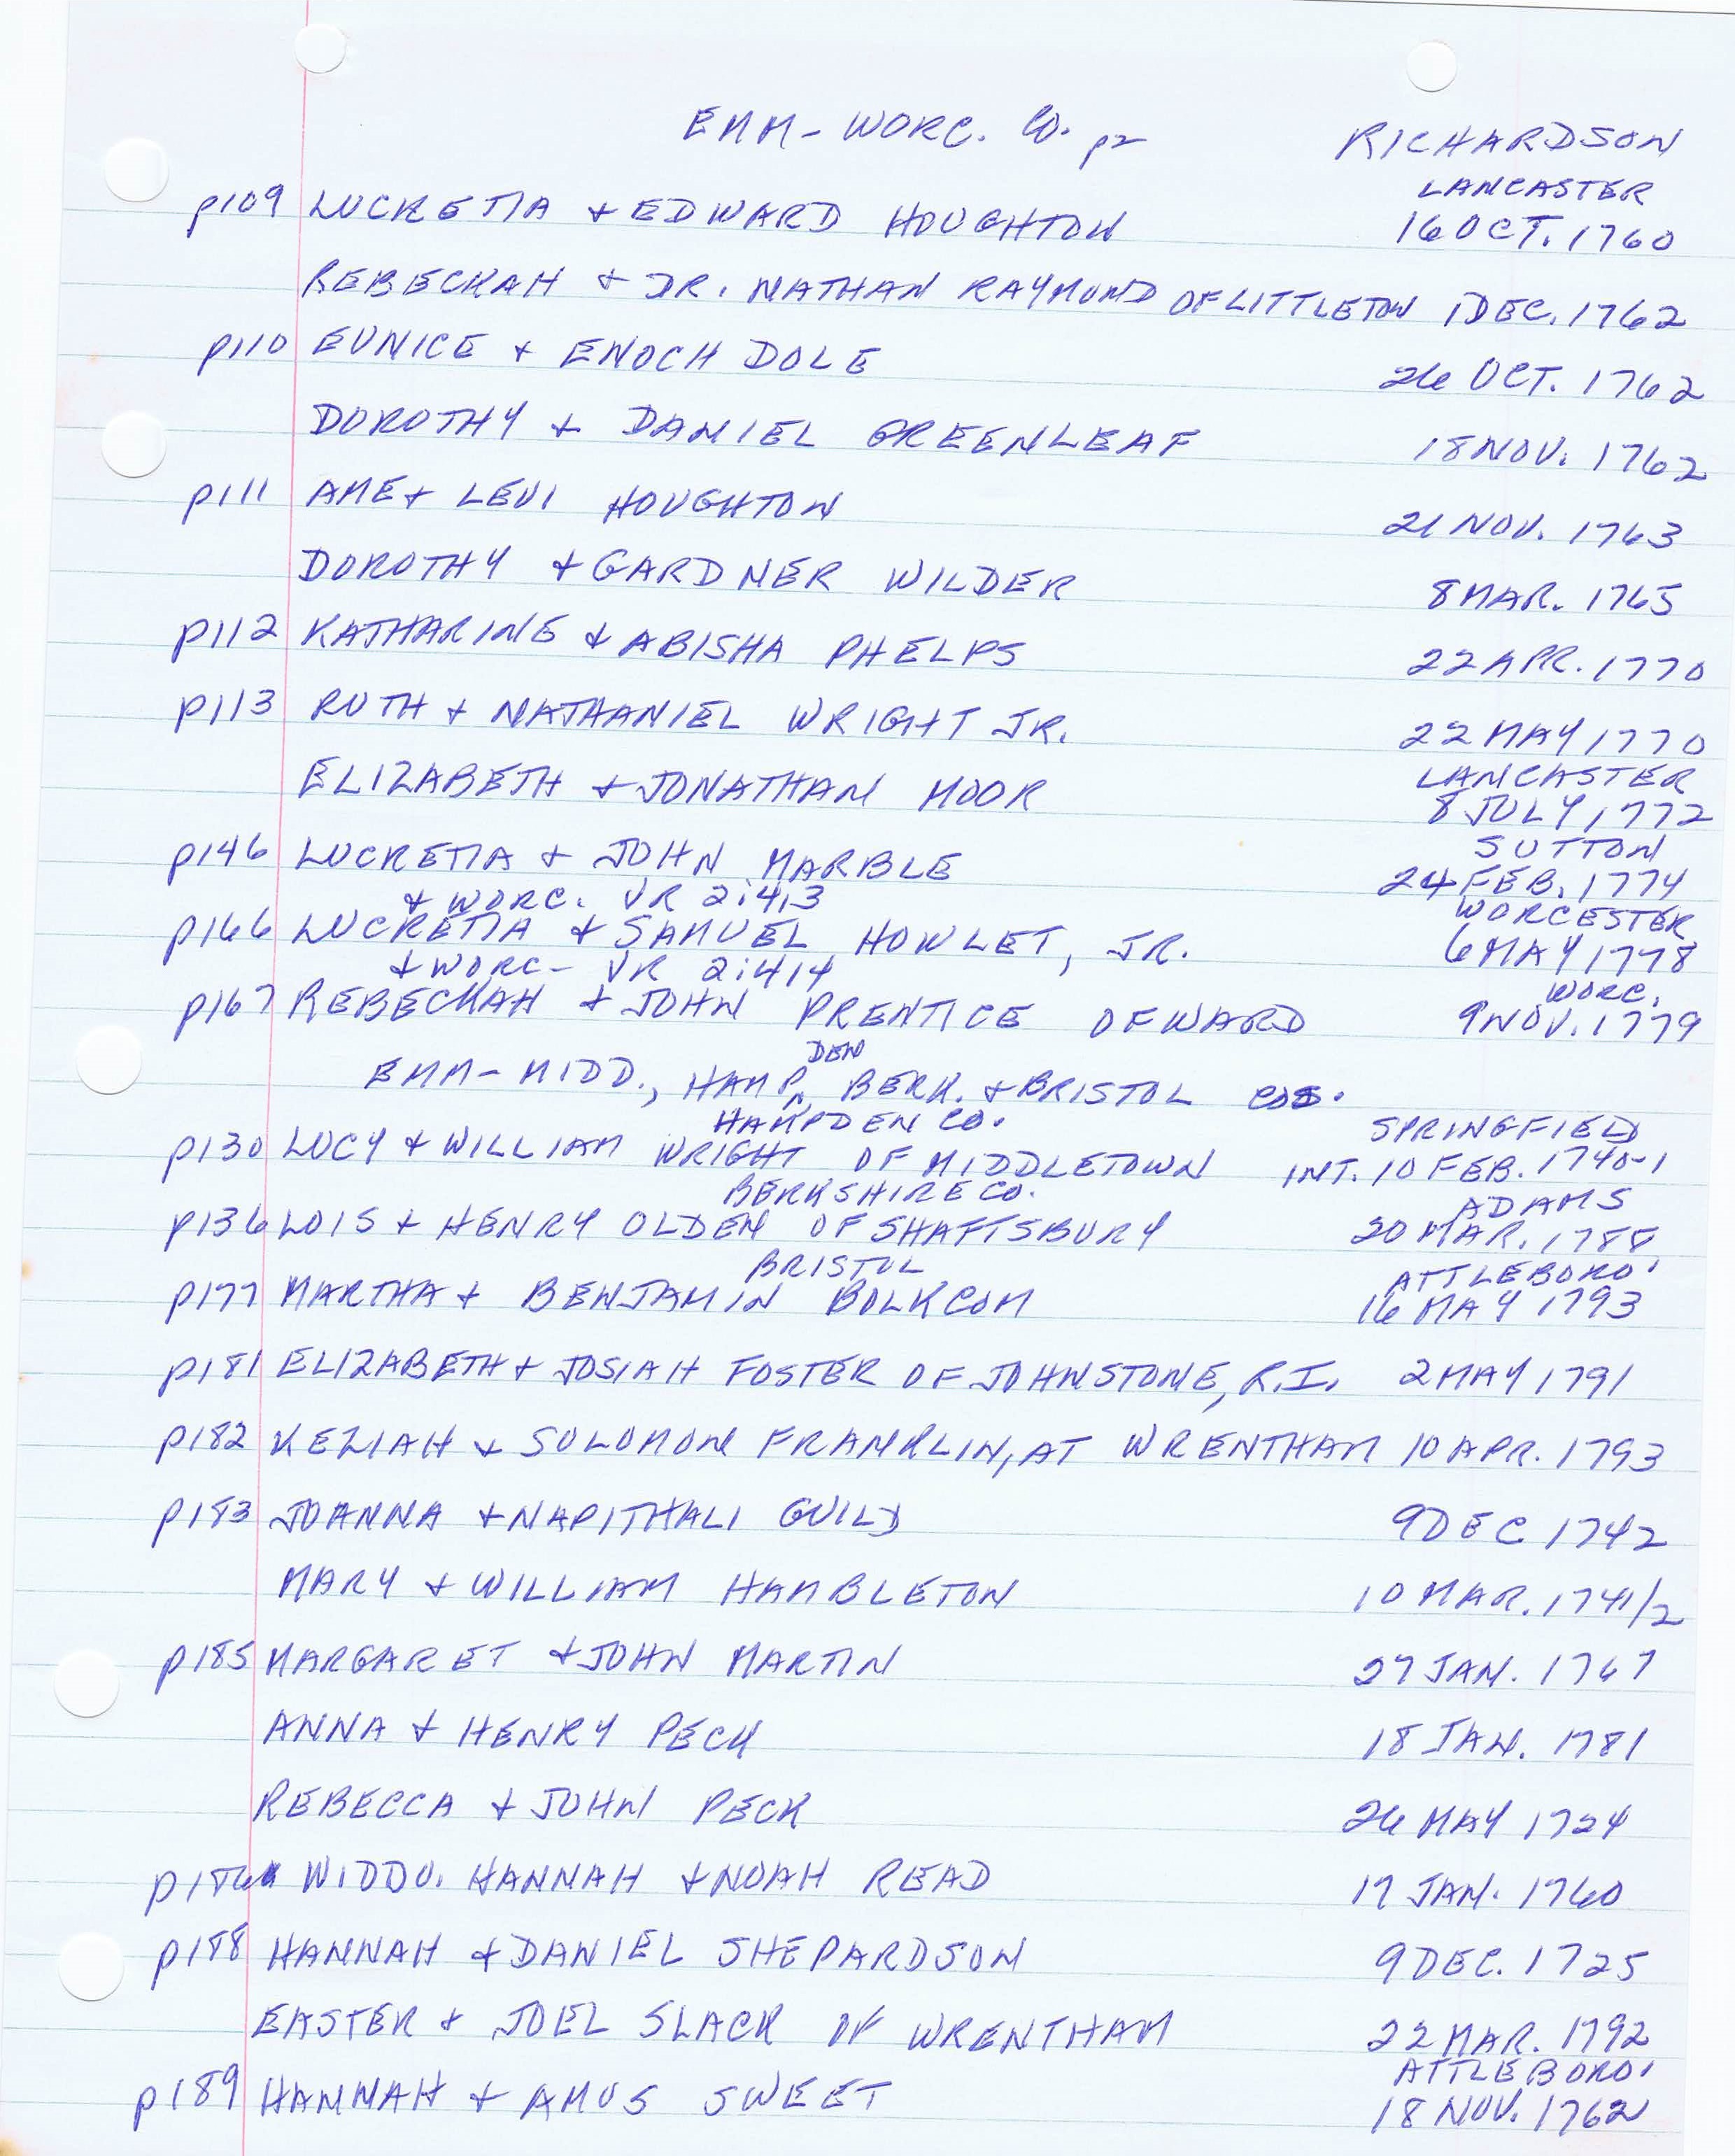 EMM - WORC. Co. p2 RICHARDSON
LANCASTER
p109 LUCRETIA & EDWARD HOUGHTON 16 OCT. 1760
REBECKAH & DR. NATHAN RAYMOND OF LITTLETON 1 DEC. 1762
p110 EUNICE & ENOCH DOLE 26 OCT. 1762
DOROTHY & DANIEL GREENLEAF 18 NOV. 1762
p111 AME & LEVI HOUGHTON 21 NOV. 1763
DOROTHY & GARDNER WILDER 8 MAR. 1765
p112 KATHARINE & ABISHA PHELPS 22 APR. 1770
p113 RUTH & NATHANIEL WRIGHT JR. 22 MAY 1770
LANCASTER
ELIZABETH & JONATHAN MOOR 8 JULY 1772
SUTTON
p146 LUCRETIA & JOHN MARBLE 24 FEB. 1774
& WORC. VR 2:413 WORCESTER
p166 LUCRETIA & SAMUEL HOWLET, JR. 6 MAY 1778
& WORC - VR 2:414 WORC.
p167 REBECKAH & JOHN PRENTICE OF WARD 9 NOV. 1779
DEN
EMM - MIDD., HAMP^ BERK. & BRISTOL COS.
HAMPDEN CO. SPRINGFIELD
p130 LUCY & WILLIAM WRIGHT OF MIDDLETOWN INT. 10 FEB. 1740-1
BERKSHIRE CO. ADAMS
p136 LOIS & HENRY OLDEN OF SHAFTSBURY 20 MAR. 1788
BRISTOL ATTLEBORO'
p177 MARTHA & BENJAMIN BOLKCOM 16 MAY 1793
p181 ELIZABETH & JOSIAH FOSTER OF JOHNSTONE, R.I. 2 MAY 1791
p182 KEZIAH & SOLOMON FRANKLIN, AT WRENTHAM 10 APR. 1793
p183 JOANNA & NAPITHALI GUILD 9 DEC 1742
MARY & WILLIAM HAMBLETON 10 MAR. 1741/2
p185 MARGARET & JOHN MARTIN 27 JAN. 1767
ANNA & HENRY PECK 18 JAN. 1781
REBECCA & JOHN PECK 26 MAY 1724
p186 WIDDO. HANNAH & NOAH READ 17 JAN. 1760
p188 HANNAH & DANIEL SHEPARDSON 9 DEC. 1725
EASTER & JOEL SLACK OF WRENTHAM 22 MAR. 1792
ATTLEBORO'
p189 HANNAH & AMOS SWEET 18 NOV. 1762